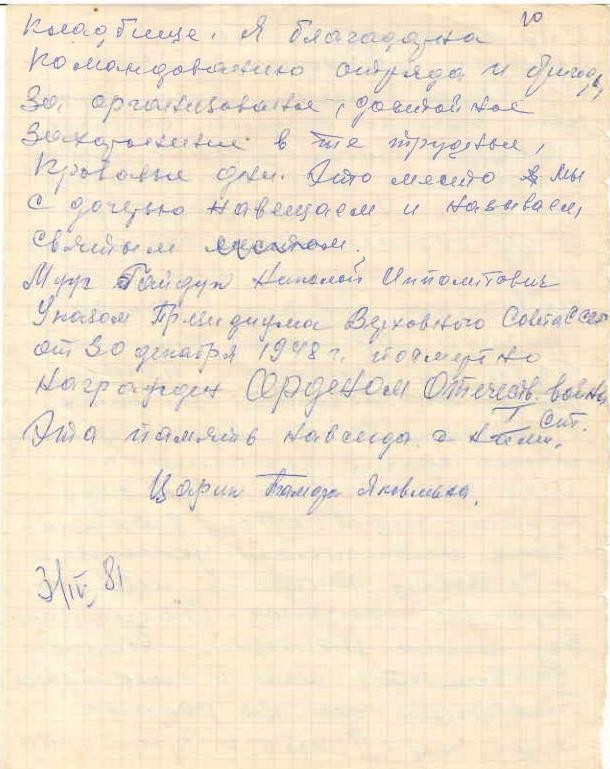 10
кладбище. Я благадарна
Командованию отряда и бригады,
за организованое, достойное
Захоронение в те трудные,
Кровавые дни. Это место мы
с дочерью навещаем и называем,
святым местом.
Муж Гайдук Николай Ипполитович
Указом Президиума Верховного Совета СССР
от 30 декабря 1948 г. посмертно
награжден Орденом Отечеств. войны
I ст.
Эта память навсегда с нами.
Царик Тамара Яковлевна.
3/IV, 81